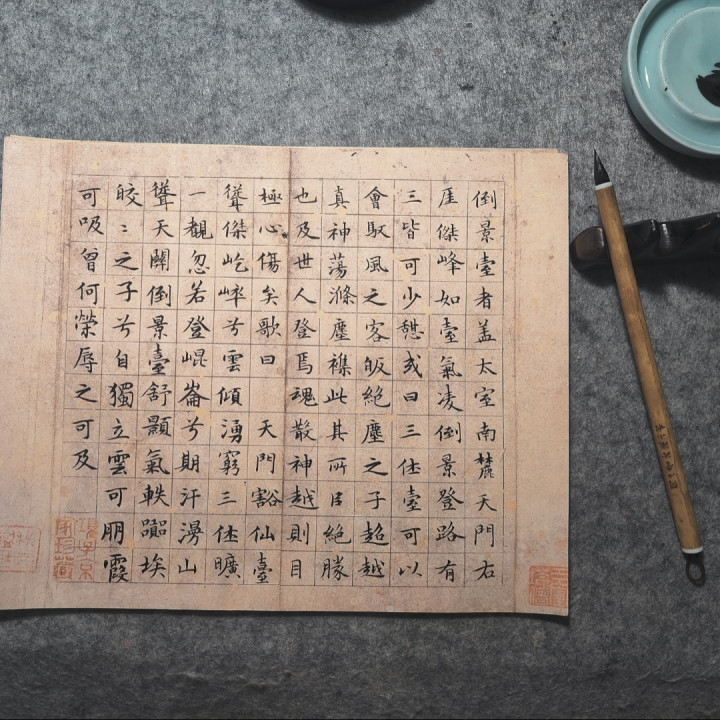 倒景臺者蓋太室南麓天門右
厓傑峰如臺氣凌倒景登路有
三皆可少憩或曰三休臺可以
會馭風之客皈絶塵之子超越
真神蕩滌塵襟此其所㠯絶勝
也及世人登焉魂散神越則目
極心傷矣歌曰 天門豁仙臺
聳傑屹崒兮雲傾湧窮三休曠
一觀忽若登崐崙兮期汗漫山
聳天關倒景臺舒顥氣軼埃
皎〻之子兮自獨立雲可朋霞
可吸曾何榮辱之可及